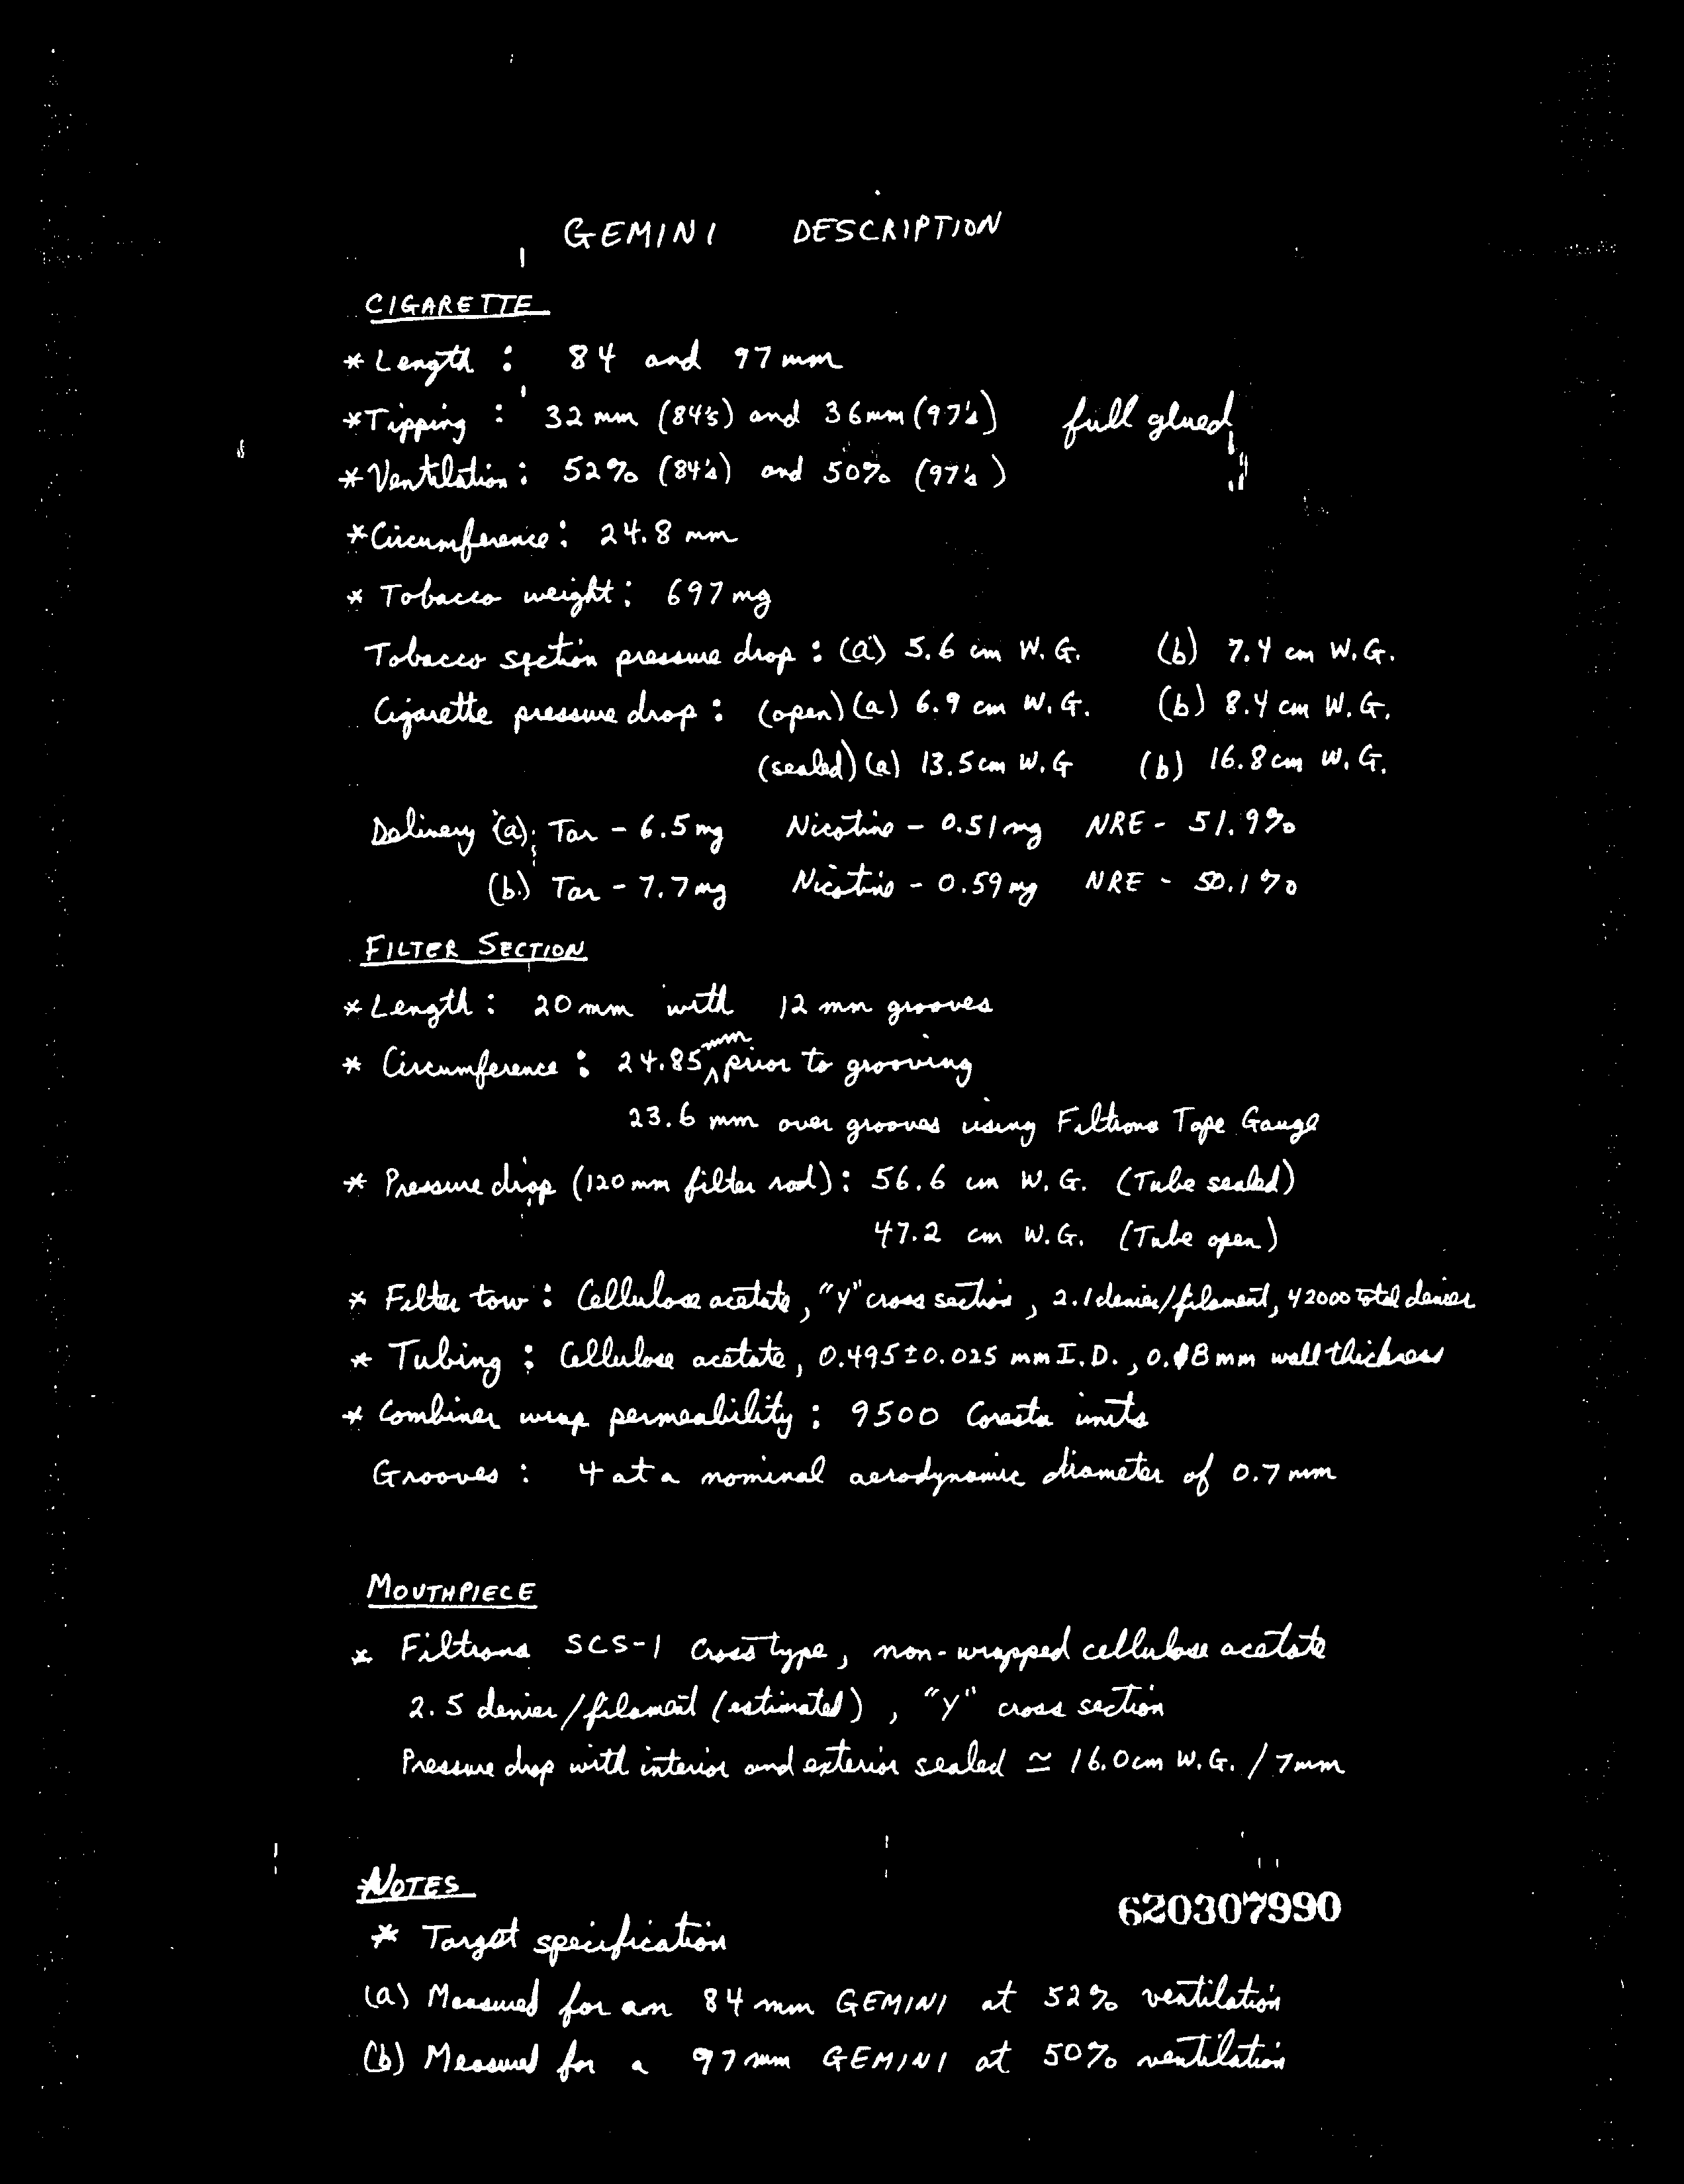 GEMINI DESCRIPTION
CIGARETTE
* Length : 84 and 97 mm
* Tipping : 32 mm (84's) and 36 mm (97's) full glued
* Ventilation : 52% (84's) and 50% (97's)
* Circumference : 24.8 mm
* Tobacco weight : 697 mg
Tobacco section pressure drop : (a) 5.6 cm W.G. (b) 7.4 cm W.G.
Cigarette pressure drop : (open) (a) 6.9 cm W.G. (b) 8.4 cm W.G.
(sealed) (a) 13.5 cm W.G (b) 16.8 cm W.G.
Delivery (a): Tar - 6.5 mg Nicotine - 0.51 mg NRE - 51.9%
(b) Tar - 7.7 mg Nicotine - 0.59 mg NRE - 50.1%
FILTER SECTION
* Length : 20 mm with 12 mm grooves
* Circumference : 24.85 mm prior to grooving
23.6 mm over grooves using Filtrona Tape Gauge
* Pressure drop (120 mm filter rod) : 56.6 cm W.G. (Tube sealed)
47.2 cm W.G. (Tube open)
* Filter tow : Cellulose acetate, "Y" cross section, 2.1 denier/filament, 42000 total denier
* Tubing : Cellulose acetate, 0.495±0.025 mm I.D., 0.18 mm wall thickness
* Combiner wrap permeability : 9500 Coresta units
Grooves : 4 at a nominal aerodynamic diameter of 0.7 mm
MOUTHPIECE
* Filtrona SCS-1 Cross type, non-wrapped cellulose acetate
2.5 denier/filament (estimated), "Y" cross section
Pressure drop with interior and exterior sealed ≃ 16.0 cm W.G. / 7 mm
NOTES
620307990
* Target specification
(a) Measured for an 84 mm GEMINI at 52% ventilation
(b) Measured for a 97 mm GEMINI at 50% ventilation